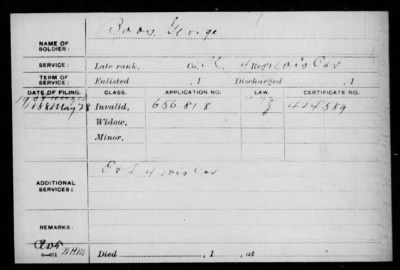 NAME OF SOLDIER: Boos, George
SERVICE: Late rank, Co. K, 4 Reg't Cav
TERM OF SERVICE: Enlisted , 1 Discharged , 1
DATE OF FILING. CLASS. APPLICATION NO. LAW. CERTIFICATE NO.
1888 May 28 Invalid, 656818 G 424589
Widow,
Minor,
ADDITIONAL SERVICES: Cav
REMARKS:
Died , 1 , at